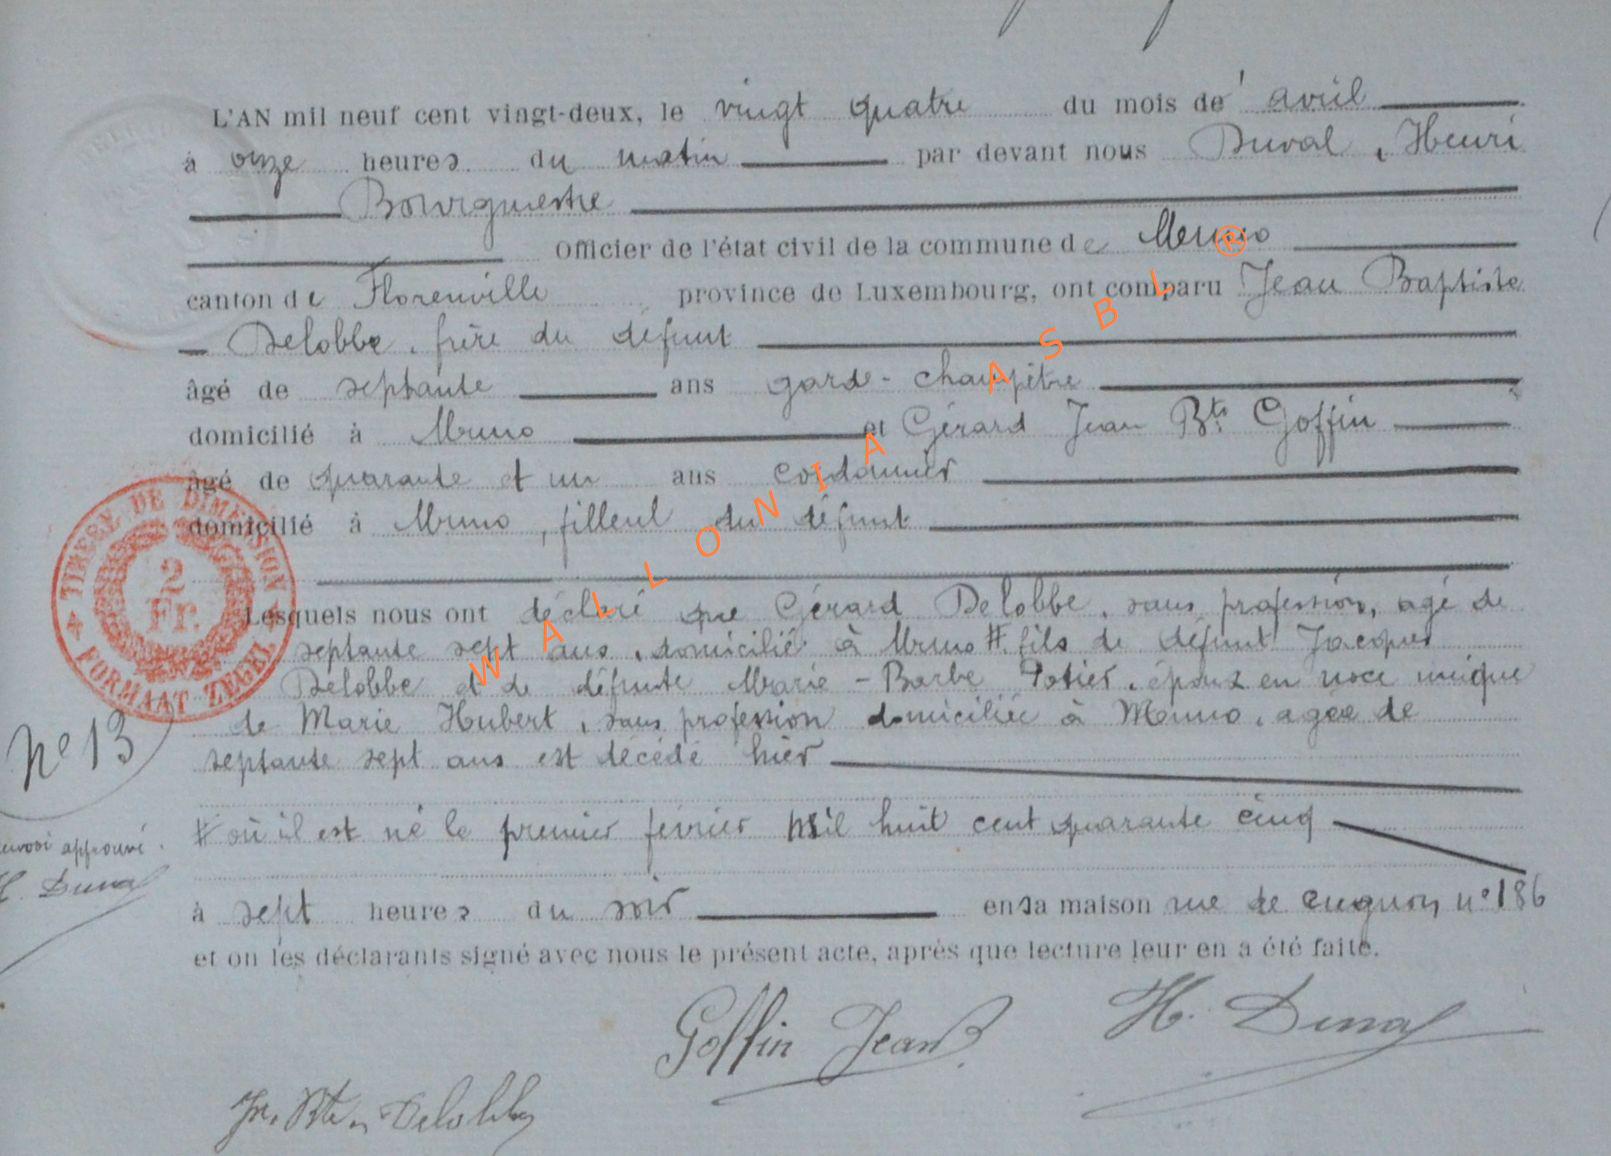 L'AN mil neuf cent vingt-deux, le vingt quatre du mois de avril
à onze heures du matin par devant nous Duval, Henri
Bourgmestre
Officier de l'état civil de la commune de Muno
canton de Florenville province de Luxembourg, ont comparu Jean Baptiste
Delobbe, frère du défunt
âgé de septante ans garde-champêtre
domicilié à Muno et Gérard Jean Bte Goffin
âgé de quarante et un ans cordonnier
domicilié à Muno, filleul du défunt
Lesquels nous ont déclaré que Gérard Delobbe, sans profession, agé de
septante sept ans, domicilié à Muno # fils de défunt Jacques
Delobbe et de défunte Marie-Barbe Potier, époux en noce unique
de Marie Hubert, sans profession domiciliée à Muno, agée de
septante sept ans est décédé hier
# où il est né le premier février mil huit cent quarante cinq
à sept heures du soir en sa maison rue de Cugnon n° 186
et on les déclarants signé avec nous le présent acte, après que lecture leur en a été faite.
N° 13
approuvé.
H. Duval
Goffin Jean B.
H. Duval
Jn. Bte. Delobbe
TIMBRE DE DIMENSION
2
Fr.
FORMAAT ZEGEL
WALLONIA ASBL ®